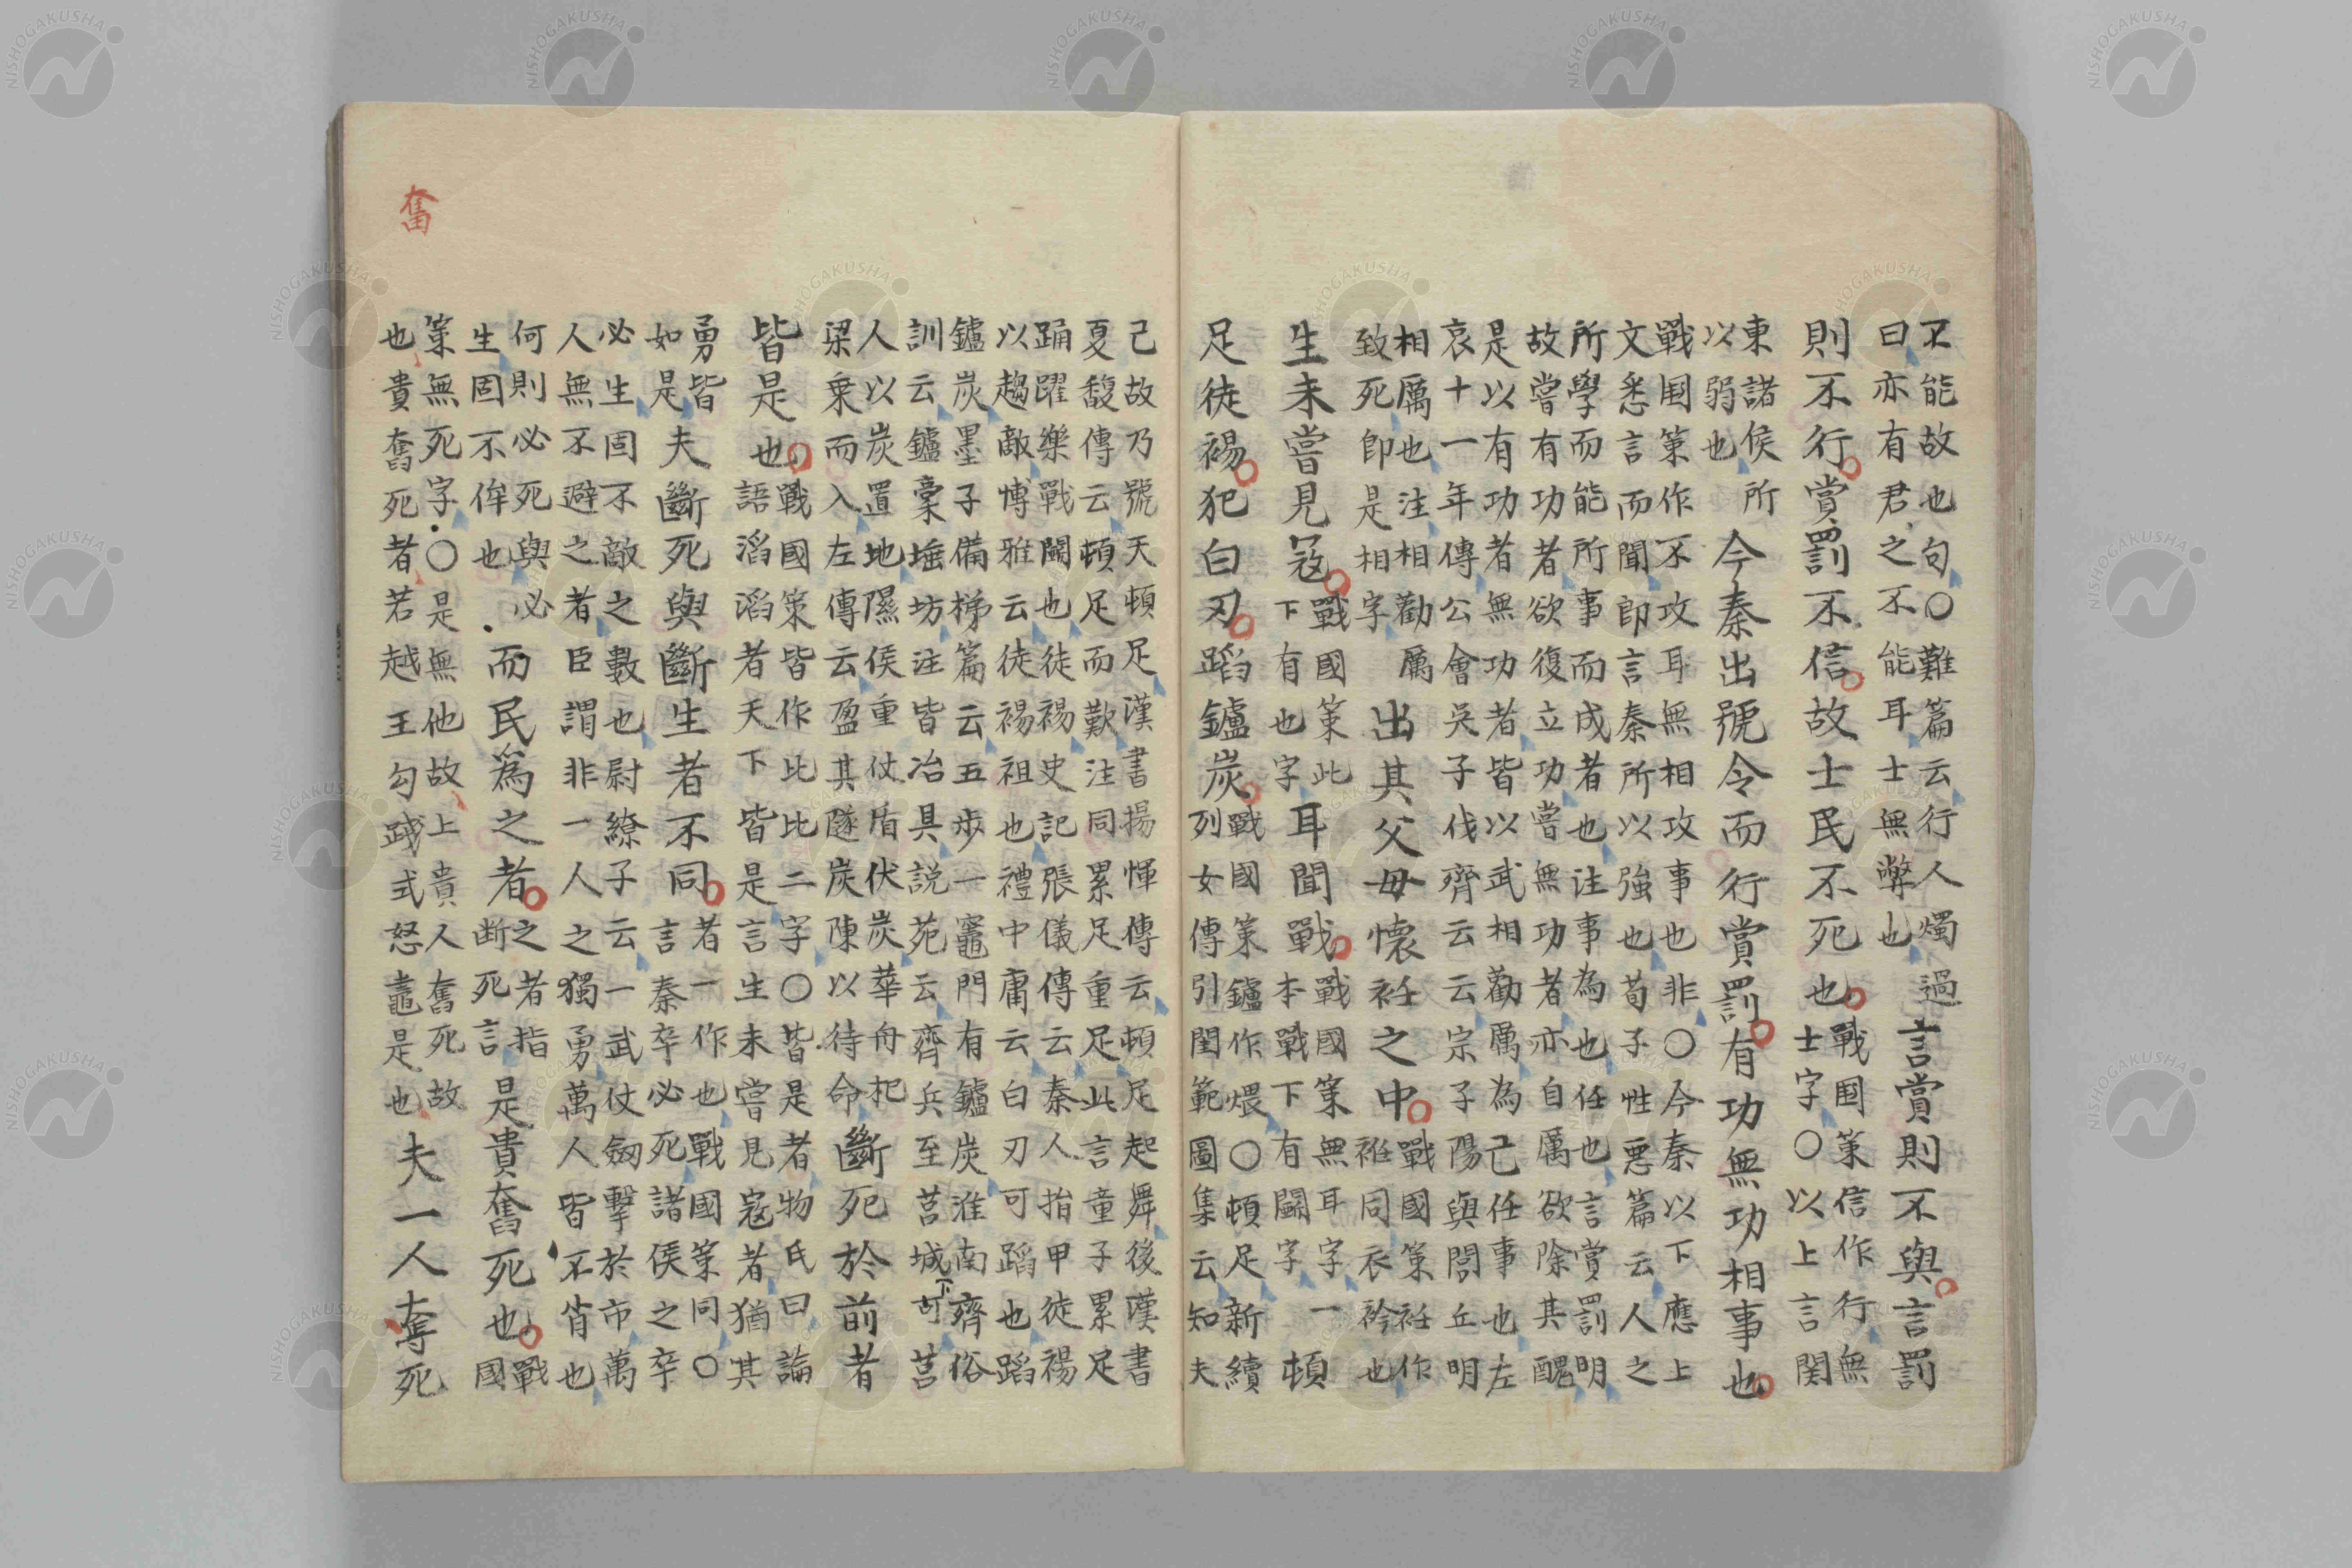 不能故也句〇難篇云行人燭過
曰亦有君之不能耳士無弊也
言賞則不與言罰
則不行賞罰不信故士民不死也
戰国策信作行無
士字〇以上言関
東諸侯所
以弱也
今秦出號令而行賞罰有功無功相事也
戰国策作不攻耳無相攻事也非〇今秦以下應上
文悉言而聞即言秦所以強也荀子性悪篇云人之
所學而能所事而成者也注事為也任也言賞罰明
故嘗有功者欲復立功嘗無功者亦自厲欲除其醜
是以有功者無功者皆以武相勸厲為己任事也左
哀十一年傳公會吳子伐齊云云宗子陽與閭丘明
相厲也注相勸厲
致死即是相字
出其父母懐衽之中
戰國策衽作
袵同衣衿也
生未嘗見寇
戰國策此
下有也字
耳聞戰
戰國策無耳字一
本戰下有鬪字
頓
足徒裼犯白刃蹈鑪炭
戰國策鑪作煨〇頓足新續
列女傳引閨範圖集云知夫
己故乃號天頓足漢書揚惲傳云頓足起舞後漢書
夏馥傳云頓足而歎注同累足重足此言童子累足
踊躍樂戰鬪也徒裼史記張儀傳云秦人指甲徒裼
以趨敵博雅云徒裼袒也禮中庸云白刃可蹈也蹈
鑪炭墨子備梯篇云五歩一竈門有鑪炭淮南齊俗
訓云鑪橐埵坊注皆冶具説苑云齊兵至莒城下莒
人以炭置地隰侯重仗盾伏炭華舟杞
梁乗而入左傳云盈其隧炭陳以待命
斷死於前者
皆是也
戰國策皆作比比二字〇皆是者物氏曰論
語滔滔者天下皆是言生未嘗見寇者猶其
勇皆
如是
夫斷死與斷生者不同
者一作也戰國策同〇
言秦卒必死諸侯之卒
必生固不敵之數也尉繚子云一武仗劔撃於市萬
人無不避之者臣謂非一人之獨勇萬人皆不肖也
何則必死與必
生固不侔也
而民為之者
之者指
断死言
是貴奮死也
戰
國
奮
策無死字〇是無他故上貴人奮死故
也貴奮死者若越王勾踐式怒鼃是也
夫一人奪死